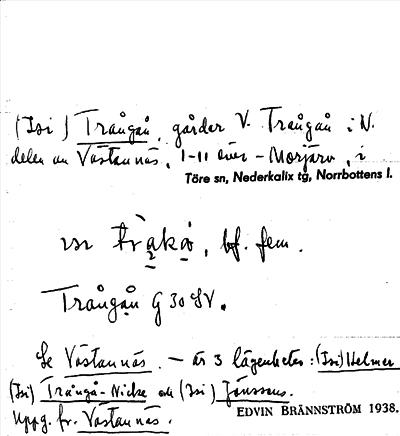 (Isi) Trångån, gårder V. Trångån i N.
delen av Västannäs, 1-11 över-Morjärv, i
Töre sn, Nederkalix tg, Norrbottens l.
bf. fem.
Trångån G 30 SV.
Se Västannäs. – är 3 lägenheter: (Isi) Helmer
(Isi) Trångå-Nicke och (Isi) Jonssons.
Uppg. fr. Västannäs.
EDVIN BRÄNNSTRÖM 1938.